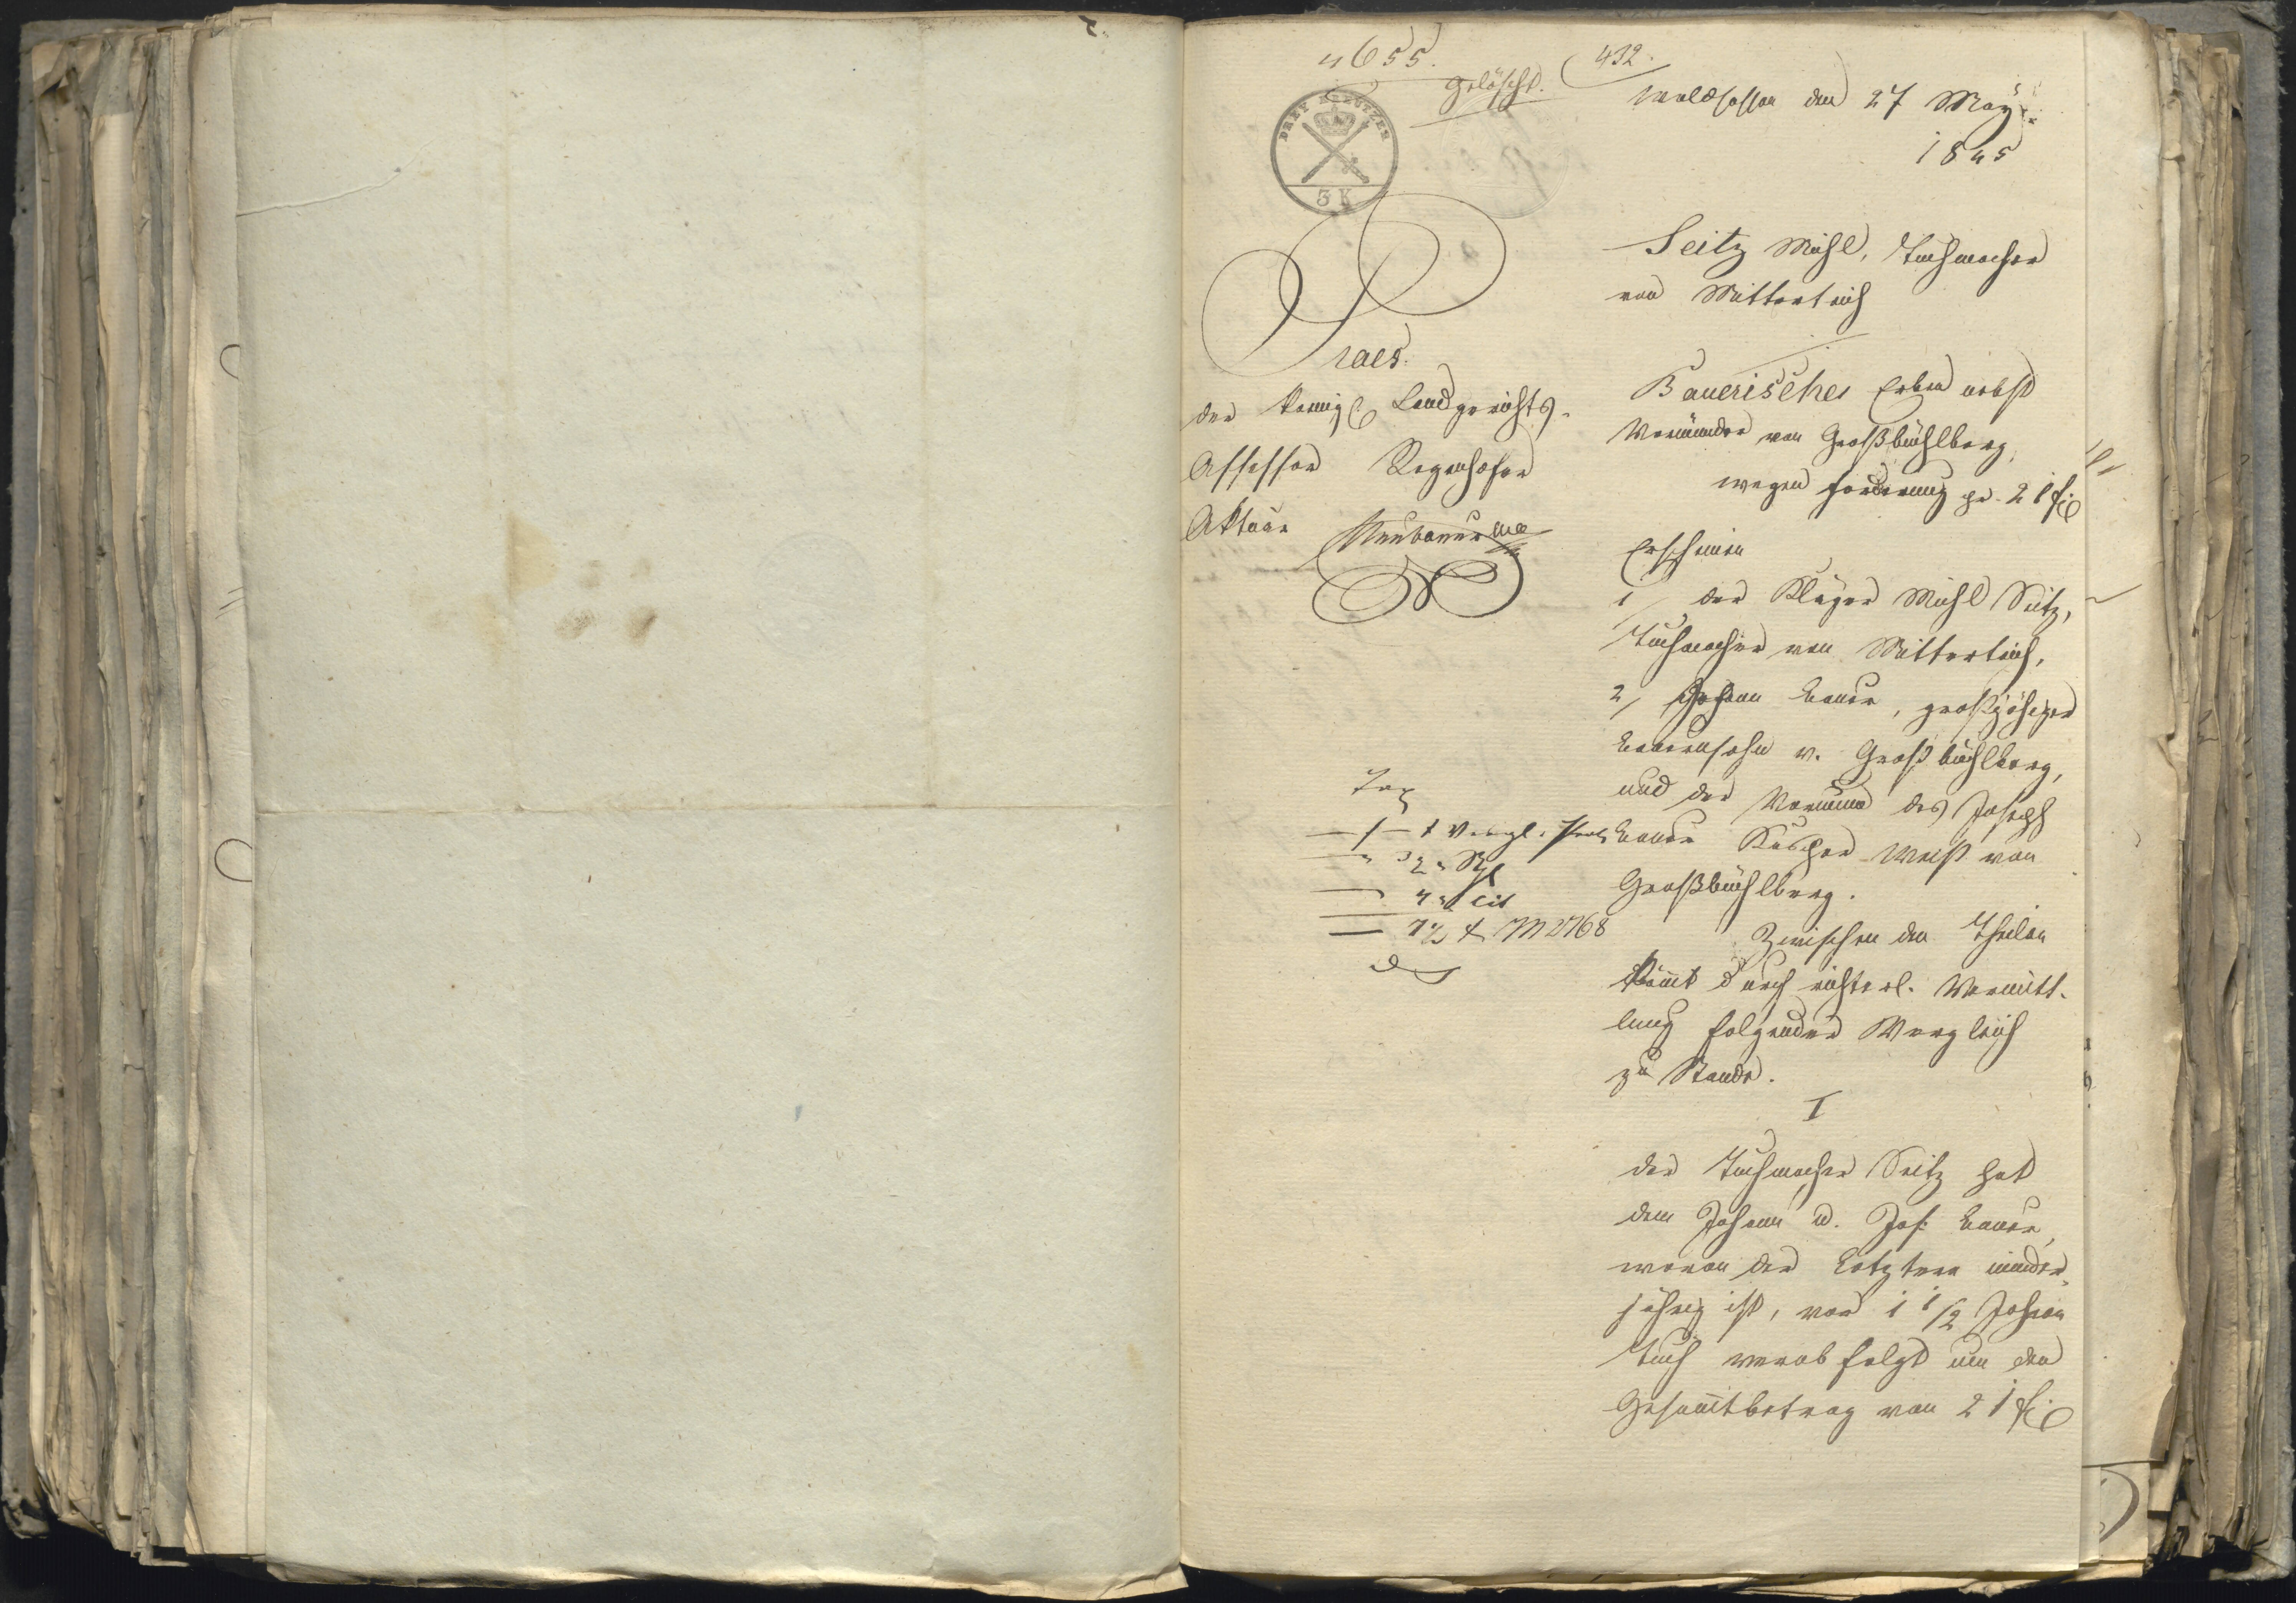 4655.
gelöscht.
432.
DREY KREUTZER
3 K
Waldsassen den 27 May
1845
Praes.
der königl Landgerichts-
Assessor Regenhofer
Aktuar Neubauer
Seitz Michl, Tuchmacher
von Mitterteich
Bauerischer Erben nebst
Vormünder von Großbüchlberg,
wegen Forderung pr. 21 f
Erscheinen
1/ der Kläger Michl Seitz,
Tuchmacher von Mitterteich,
2/ Johann Bauer, großjähriger
Bauerssohn v. Großbüchlberg,
und der Vormund des Joseph
Bauer Kaspar Weiß von
Großbüchlberg.
Zwischen den Theilen
kömmt durch richterl. Vermitt-
lung folgender Vergleich
zu Stande.
I
Der Tuchmacher Seitz hat
dem Johann u. Jos: Bauer,
wovon der Letztere minder-
jährig ist, vor 1 1/2 Jahren
Tuch verabfolgt um den
Gesammtbetrag von 21 f
Tax
1 Vergl. Prot
2
4 cit
M 2768